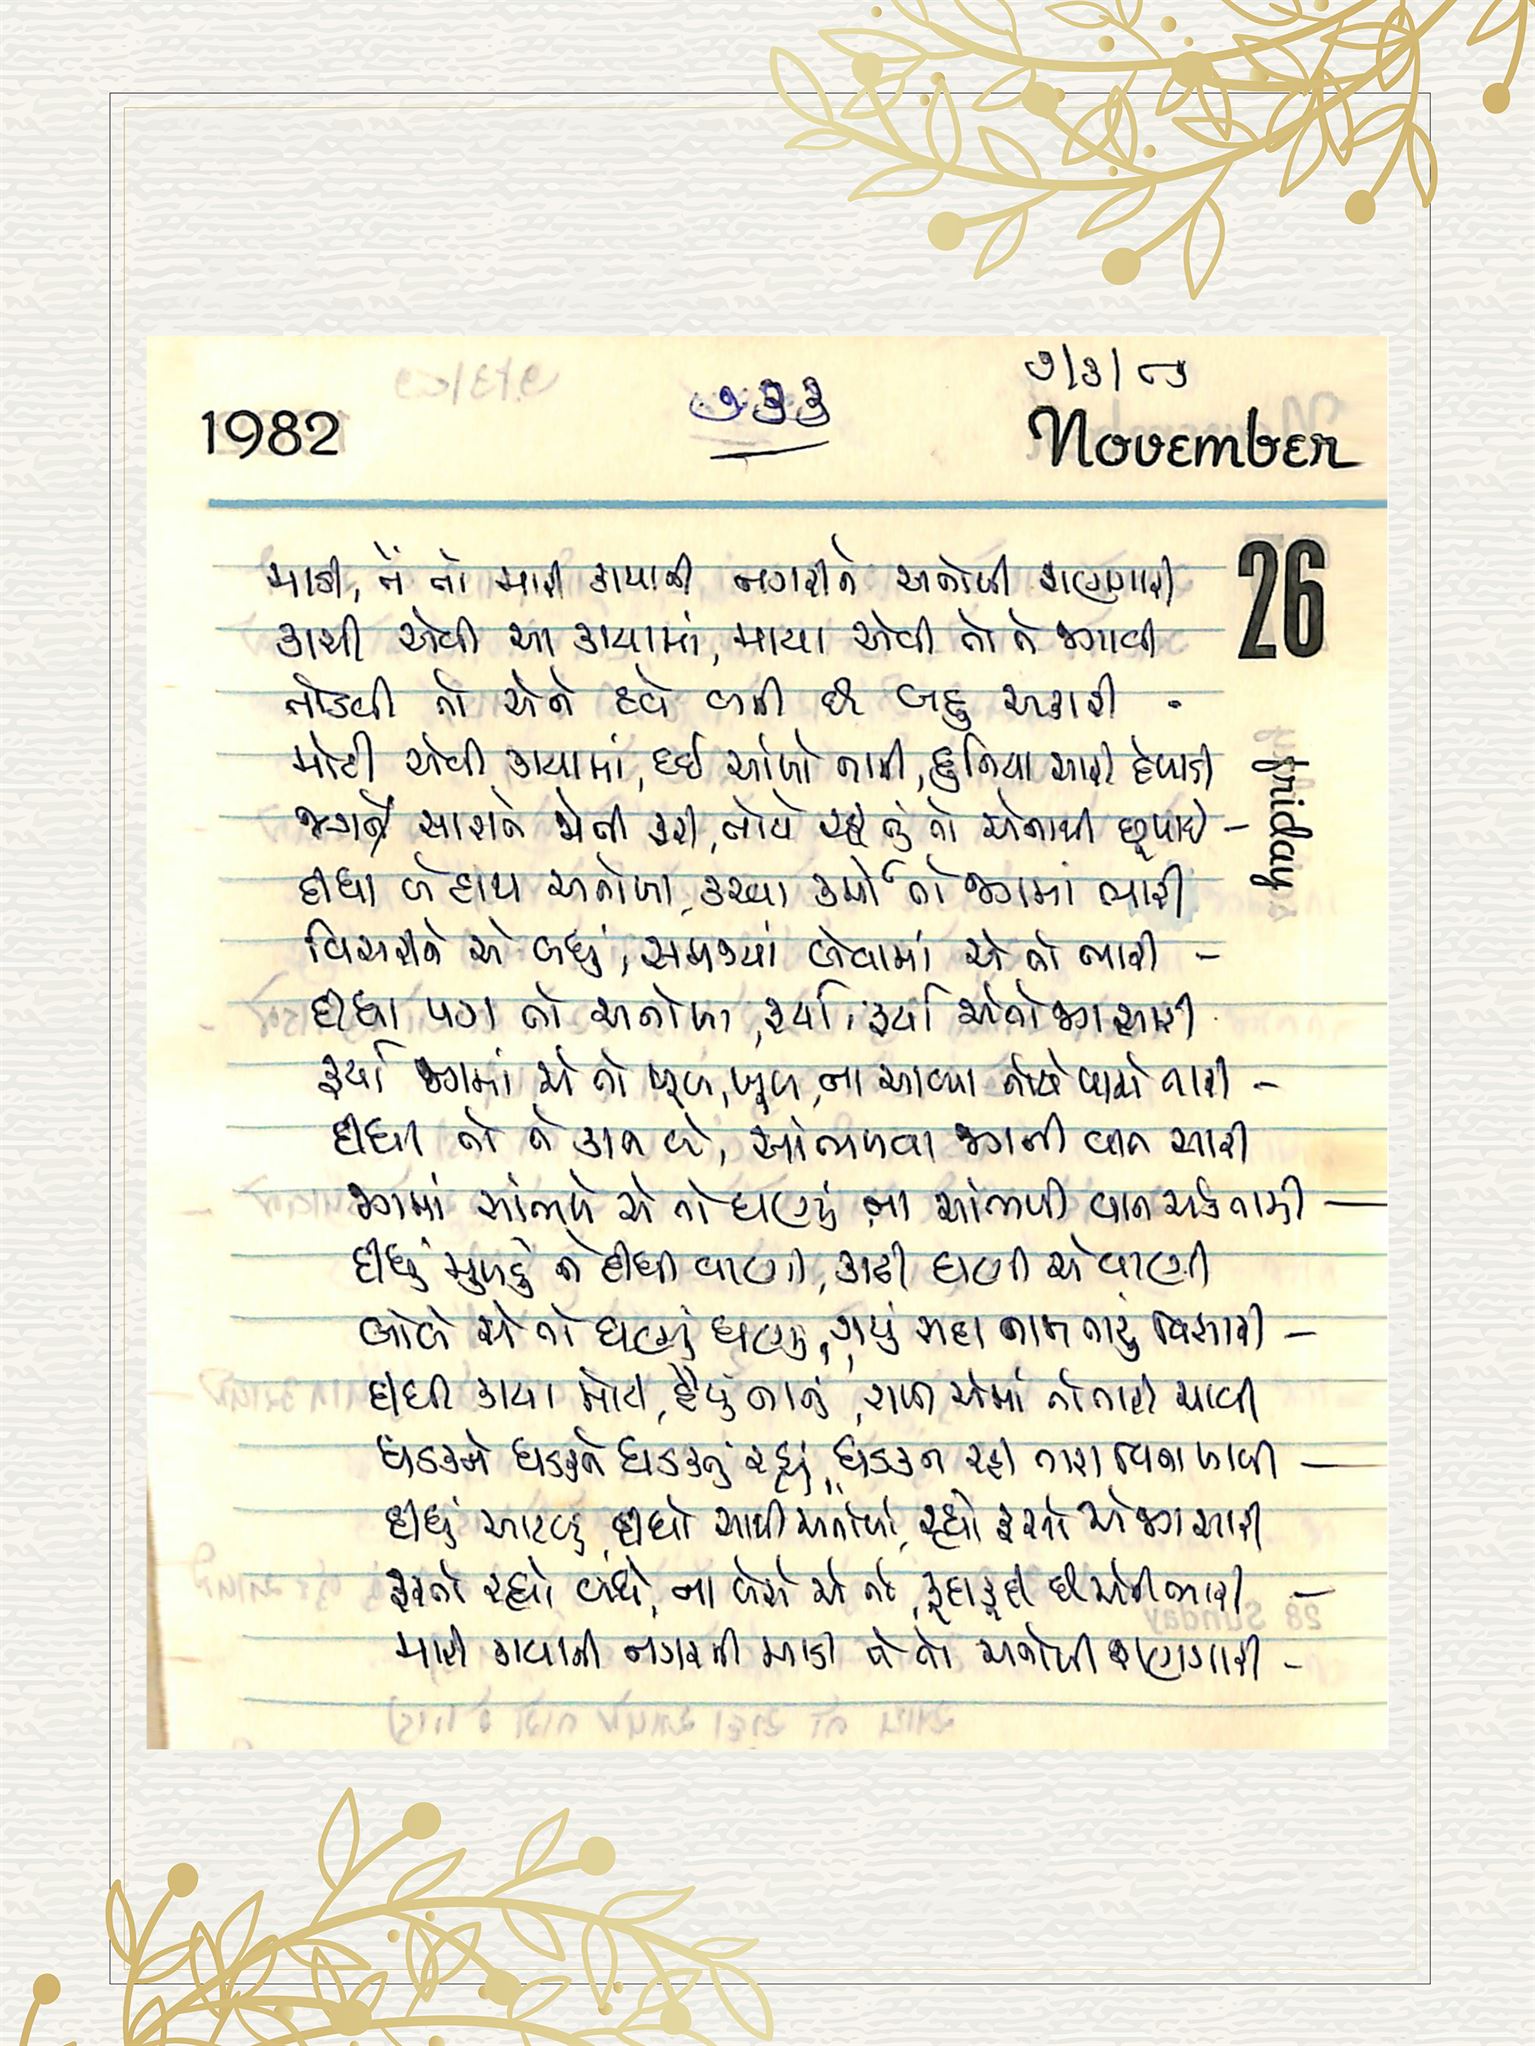 ૭/૩/૮૭
૭૩૩
1982
November
26
friday
માડી, તેં તો મારી કાયાની નગરીને અનોખી શણગારી
કાચી એવી આ કાયામાં, માયા એવી તો તેં જગાવી
તોડવી તો એને હવે બની છે બહુ અકારી -
મોટી એવી કાયામાં, દઈ આંખો નાની, દુનિયા સારી દેખાડી
જગને સારાને જોતી કરી, તોયે રહ્યું તું તો એનાથી છૂપાઈ -
દીધા બે હાથ અનોખા, કરવા કર્મો તો જગમાં ભારી
વિસરીને એ બધું, સમજ્યાં લેવામાં એ તો ભારી -
દીધા પગ તો અનોખા, ફર્યા, ફર્યા એ તો જગ સારી
ફર્યા જગમાં એ તો ખૂબ, ખૂબ, ના આવ્યા તોયે પાસે તારી -
દીધી તો તેં કાન બે, સાંભળવા જગની વાત સારી
જગમાં સાંભળે એ તો ઘણું, ના સાંભળી વાત એકે તારી -
દીધું મુખડું ને દીધી વાણી, કાઢી ઘણી એ વાણી
બોલે એ તો ઘણું ઘણું, ગયું સદા નામ તારું વિસારી -
દીધી કાયા મોટી, હૈયું નાનું, રાખી એમાં તો તારી ચાવી
ધડકને ધડકને ધડકતું રહ્યું, ધડકન રહી તારા વિના ખાલી -
દીધું આટલું, દીધો સાથી અનોખો, રહ્યો ફરતો એ જગ સારી
ફરતો રહ્યો બધે, ના બેસે એ તો, કૂદાકૂદી છે એની ભારી -
મારી કાયાની નગરની માડી તેં તો અનોખી શણગારી -